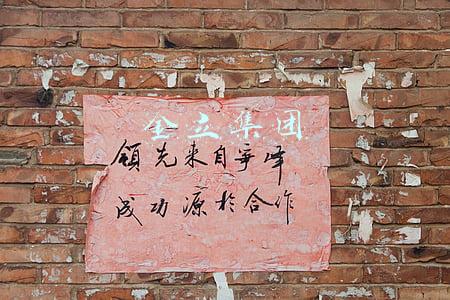 全立集团
領先来自争峰
成功源於合作